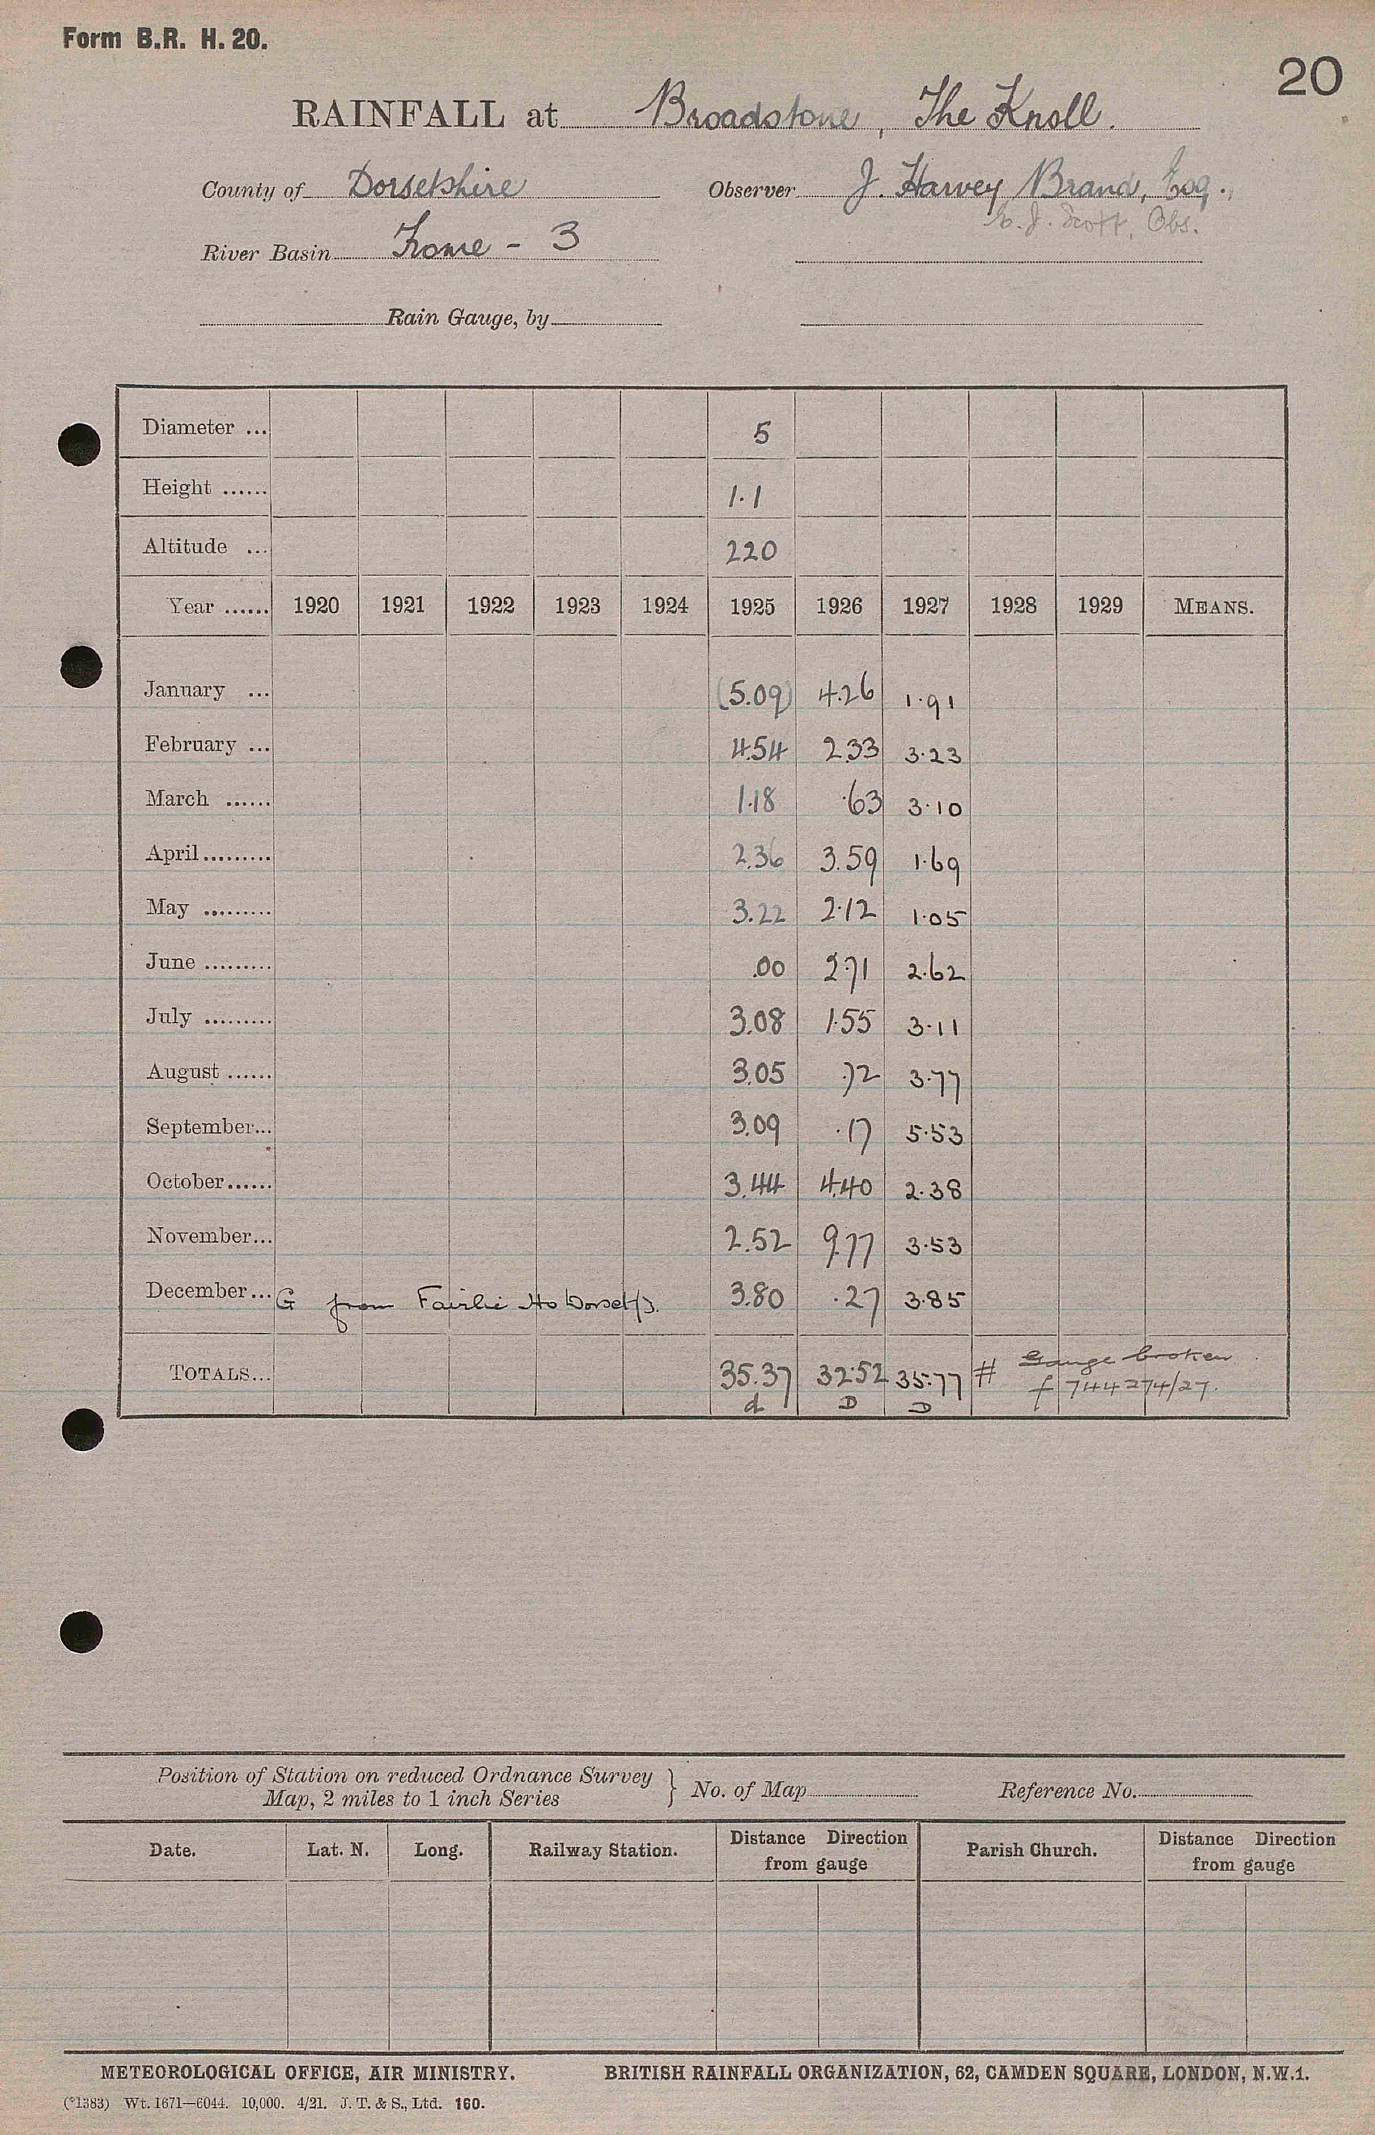 Form B.R. H. 20.
20
RAINFALL at Broadstone, The Knoll.
County of Dorsetshire Observer J. Harvey Brand, Esq.,
E. J. Scott, Obs.
River Basin Frome - 3
Rain Gauge, by
Diameter ... 5
Height ...... 1.1
Altitude ... 220
Year ...... 1920 1921 1922 1923 1924 1925 1926 1927 1928 1929 MEANS.
January ... (5.09) 4.26 1.91
February ... 4.54 2.33 3.23
March ...... 1.18 .63 3.10
April ......... 2.36 3.59 1.69
May ......... 3.22 2.12 1.05
June ......... .00 2.71 2.62
July ......... 3.08 1.55 3.11
August ...... 3.05 .72 3.77
September... 3.09 .17 5.53
October...... 3.44 4.40 2.38
November... 2.52 9.77 3.53
December... G from Fairlie Ho Dorset/3. 3.80 .27 3.85
TOTALS... 35.37 32.52 35.77 # Gauge broken
d D D f 744274/27.
Position of Station on reduced Ordnance Survey
Map, 2 miles to 1 inch Series } No. of Map Reference No.
Date. Lat. N. Long. Railway Station. Distance Direction from gauge Parish Church. Distance Direction from gauge
METEOROLOGICAL OFFICE, AIR MINISTRY. BRITISH RAINFALL ORGANIZATION, 62, CAMDEN SQUARE, LONDON, N.W.1.
(*1383) Wt. 1671—6044. 10,000. 4/21. J. T. & S., Ltd. 160.